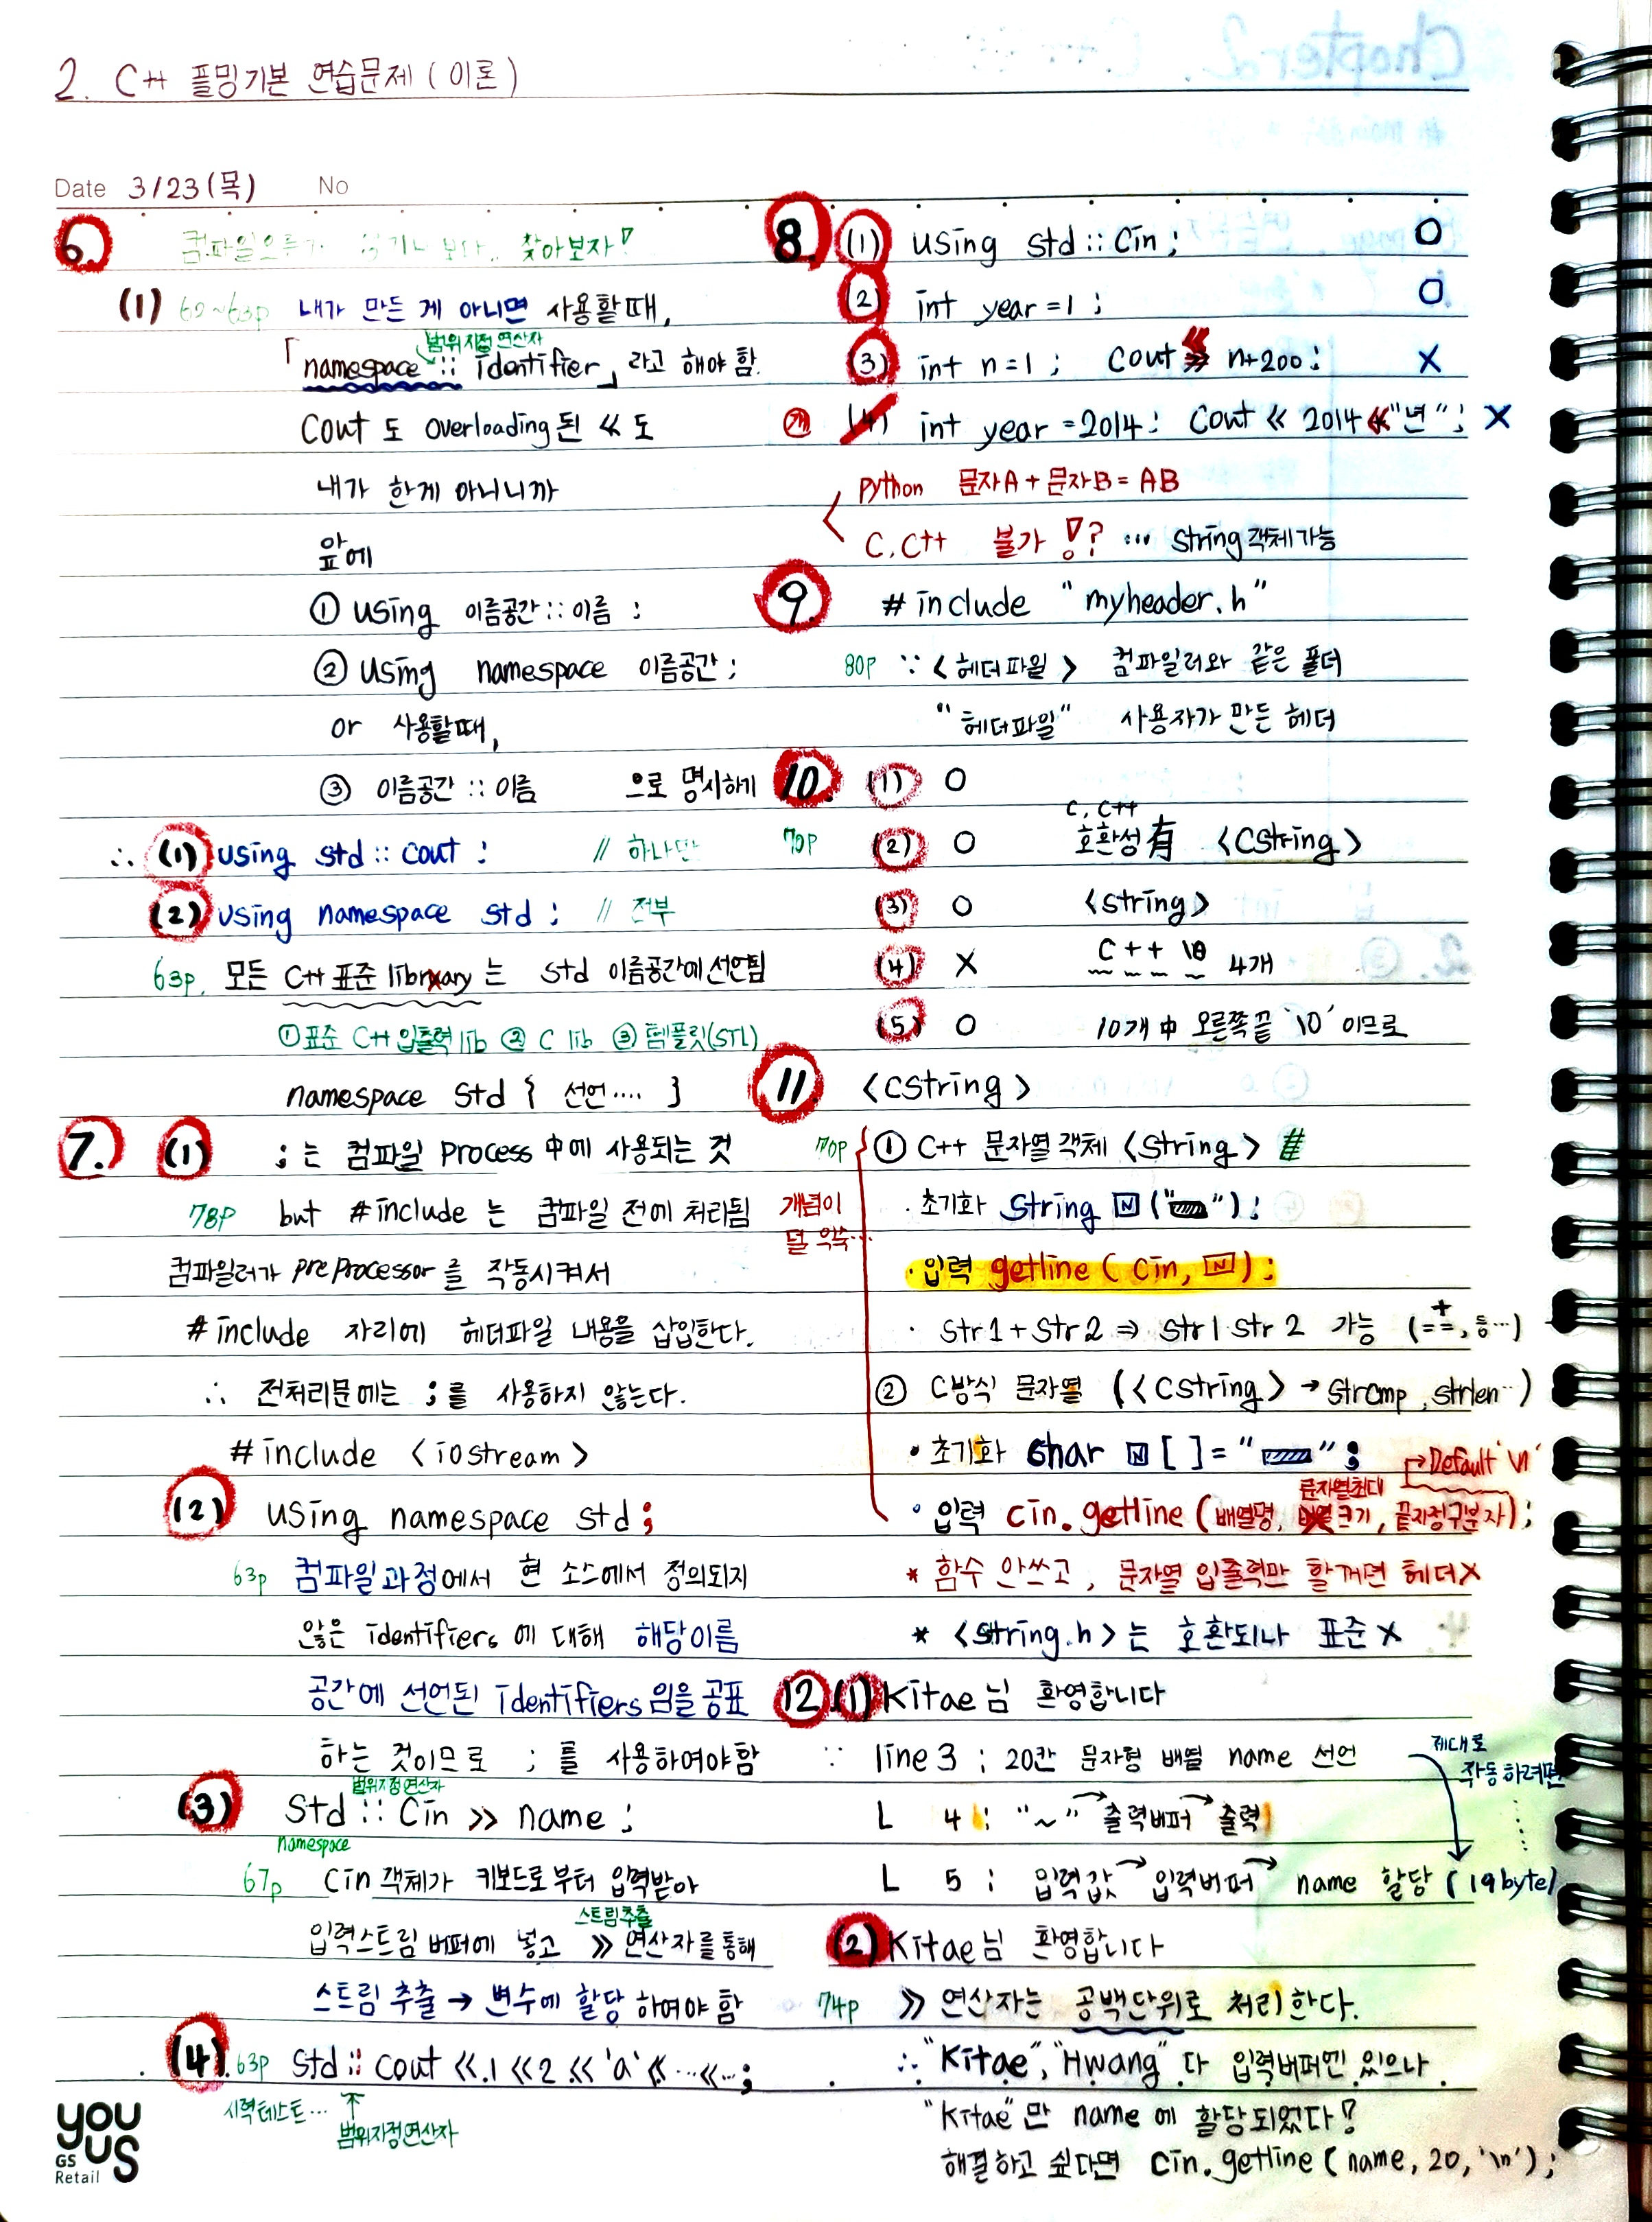 2. C++ 플밍기본 연습문제 (이론)
Date 3/23(목) No
6.
찾아보자!
(1) 62~63p 내가 만든 게 아니면 사용할때,
범위지정 연산자
「namespace :: identifier」 라고 해야 함.
Cout 도 overloading된 << 도
내가 한게 아니니까
앞에
① using 이름공간::이름 ;
② using namespace 이름공간;
or 사용할때,
③ 이름공간 :: 이름 으로 명시하기
∴ (1) using std :: cout ; // 하나만
(2) using namespace std ; // 전부
63p. 모든 C++ 표준 library 는 std 이름공간에 선언됨
① 표준 C++ 입출력 lib ② C lib ③ 템플릿(STL)
namespace std { 선언.... }
7. (1) ; 는 컴파일 process 中에 사용되는 것
78p but #include 는 컴파일 전에 처리됨
컴파일러가 preprocessor 를 작동시켜서
#include 자리에 헤더파일 내용을 삽입한다.
∴ 전처리문에는 ; 를 사용하지 않는다.
#include <iostream>
(2) using namespace std;
63p 컴파일과정에서 현 소스에서 정의되지
않은 identifiers 에 대해 해당이름
공간에 선언된 identifiers 임을 공표
하는 것이므로 ; 를 사용하여야 함
범위지정연산자
(3) Std :: Cin >> name ;
namespace
67p Cin 객체가 키보드로 부터 입력받아
스트림추출
입력스트림 버퍼에 넣고 >> 연산자를 통해
스트림 추출 → 변수에 할당 하여야 함
(4) 63p Std :: cout << 1 << 2 << 'a' << ... << ... ;
시력테스트... ↑
범위지정연산자
8. (1) using std :: cin ; O
(2) int year = 1 ; O
(3) int n = 1 ; Cout << n+200 ; X
(4) int year = 2014 ; Cout << 2014 << "년" ; X
python 문자A + 문자B = AB
C, C++ 불가 !? ... string 객체가능
9. #include "myheader.h"
80p ∵ <헤더파일> 컴파일러와 같은 폴더
"헤더파일" 사용자가 만든 헤더
10. (1) O
C, C++
79p (2) O 호환성 有 <Cstring>
(3) O <string>
(4) X C + + \0 4개
(5) O 10개 中 오른쪽끝 '\0' 이므로
11 <cstring>
70p ① C++ 문자열 객체 <string>
개념이
· 초기화 String N (" ") ;
덜 익숙...
· 입력 getline ( cin, N ) ;
· Str1 + Str2 ⇒ str1 str 2 가능 (==, + 등...)
② C방식 문자열 (<Cstring> → strcmp, strlen ..)
· 초기화 Char N [ ] = " " ;
→ Default '\n'
문자열최대
· 입력 cin.getline (배열명, 크기, 끝지정구분자) ;
* 함수 안쓰고, 문자열 입출력만 할꺼면 헤더X
* <string.h> 는 호환되나 표준 X
12 (1) Kitae 님 환영합니다
∵ line 3 ; 20칸 문자형 배열 name 선언
제대로
작동하려면
L 4 ; "~" → 출력버퍼 → 출력
L 5 ; 입력값 → 입력버퍼 → name 할당 (19byte)
(2) Kitae 님 환영합니다
74p >> 연산자는 공백단위로 처리한다.
∴ "Kitae", "Hwang" 다 입력버퍼엔 있으나
"Kitae" 만 name 에 할당되었다!
해결하고 싶다면 cin.getline ( name, 20, '\n' ) ;
you us
GS
Retail